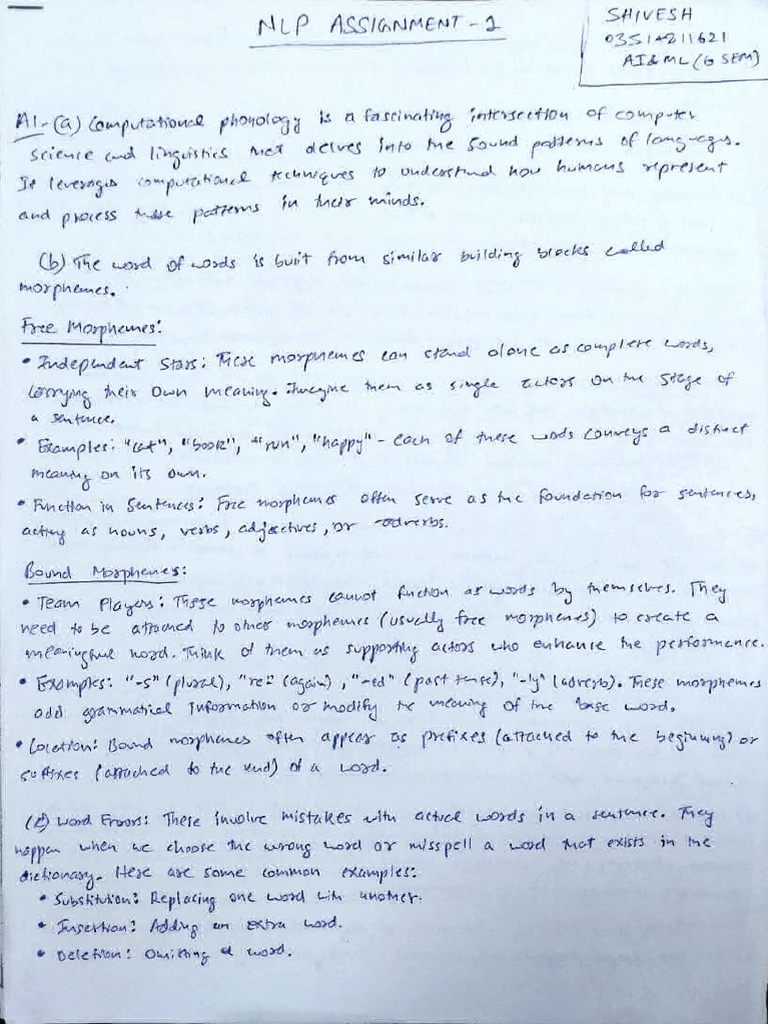 NLP ASSIGNMENT - 2
SHIVESH
03514811621
AI&ML (6 SEM)
A1- (a) Computational phonology is a fascinating intersection of computer
science and linguistics that delves into the sound patterns of languages.
It leverages computational techniques to understand how humans represent
and process these patterns in their minds.
(b) The word of words is built from similar building blocks called
morphemes.
Free Morphemes:
• Independent Stars: These morphemes can stand alone as complete words,
carrying their own meaning. Imagine them as single actors on the stage of
a sentence.
• Examples: "cat", "book", "run", "happy" - each of these words conveys a distinct
meaning on its own.
• Function in Sentences: Free morphemes often serve as the foundation for sentences,
acting as nouns, verbs, adjectives, or adverbs.
Bound Morphemes:
• Team Players: These morphemes cannot function as words by themselves. They
need to be attached to other morphemes (usually free morphemes) to create a
meaningful word. Think of them as supporting actors who enhance the performance.
• Examples: "-s" (plural), "re-" (again), "-ed" (past tense), "-ly" (adverb). These morphemes
add grammatical information or modify the meaning of the base word.
• Location: Bound morphemes often appear as prefixes (attached to the beginning) or
suffixes (attached to the end) of a word.
(c) Word Errors: These involve mistakes with actual words in a sentence. They
happen when we choose the wrong word or misspell a word that exists in the
dictionary. Here are some common examples:
• Substitution: Replacing one word with another.
• Insertion: Adding an extra word.
• Deletion: Omitting a word.